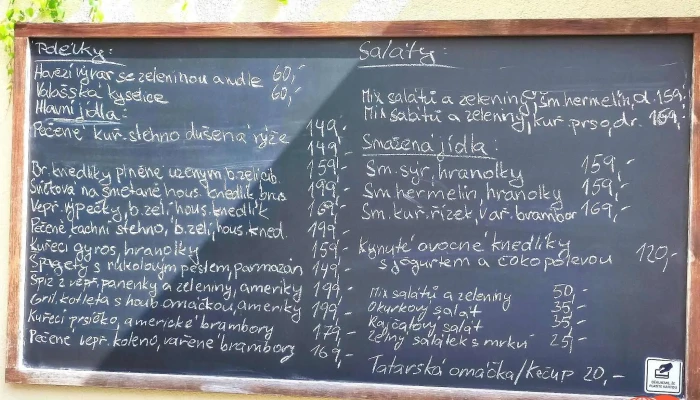 Polévky:
Hovězí vývar se zeleninou a nudle 60,-
Valašská kyselice 60,-
Hlavní jídla:
Pečené kuř. stehno dušená rýže 149,-
149,-
Br. knedlíky plněné uzeným, b. zelí, cib. 159,-
Svíčková na smetaně hous. knedlík, brus. 199,-
Vepř. výpečky, b. zelí, hous. knedlík 169,-
Pečené kachní stehno, b. zelí, hous. kned. 199,-
Kuřecí gyros, hranolky 159,-
Špagety s rukolovým pestem, parmazán 149,-
Špíz z vepř. panenky a zeleniny, ameriky 199,-
Gril. kotleta s houb. omáčkou, ameriky 199,-
Kuřecí prsíčko, americké brambory 179,-
Pečené vepř. koleno, vařené brambory 169,-
Saláty:
Mix salátů a zeleniny, sm. hermelín, d. 159,-
Mix salátů a zeleniny, kuř. prso, dr. 169,-
Smažená jídla:
Sm. sýr, hranolky 159,-
Sm. hermelín, hranolky 159,-
Sm. kuř. řízek, vař. brambor 169,-
Kynuté ovocné knedlíky
s jogurtem a čoko polevou 120,-
Mix salátů a zeleniny 50,-
Okurkový salát 35,-
Rajčatový salát 35,-
Zelný salátek s mrkví 25,-
Tatarská omáčka/Kečup 20,-